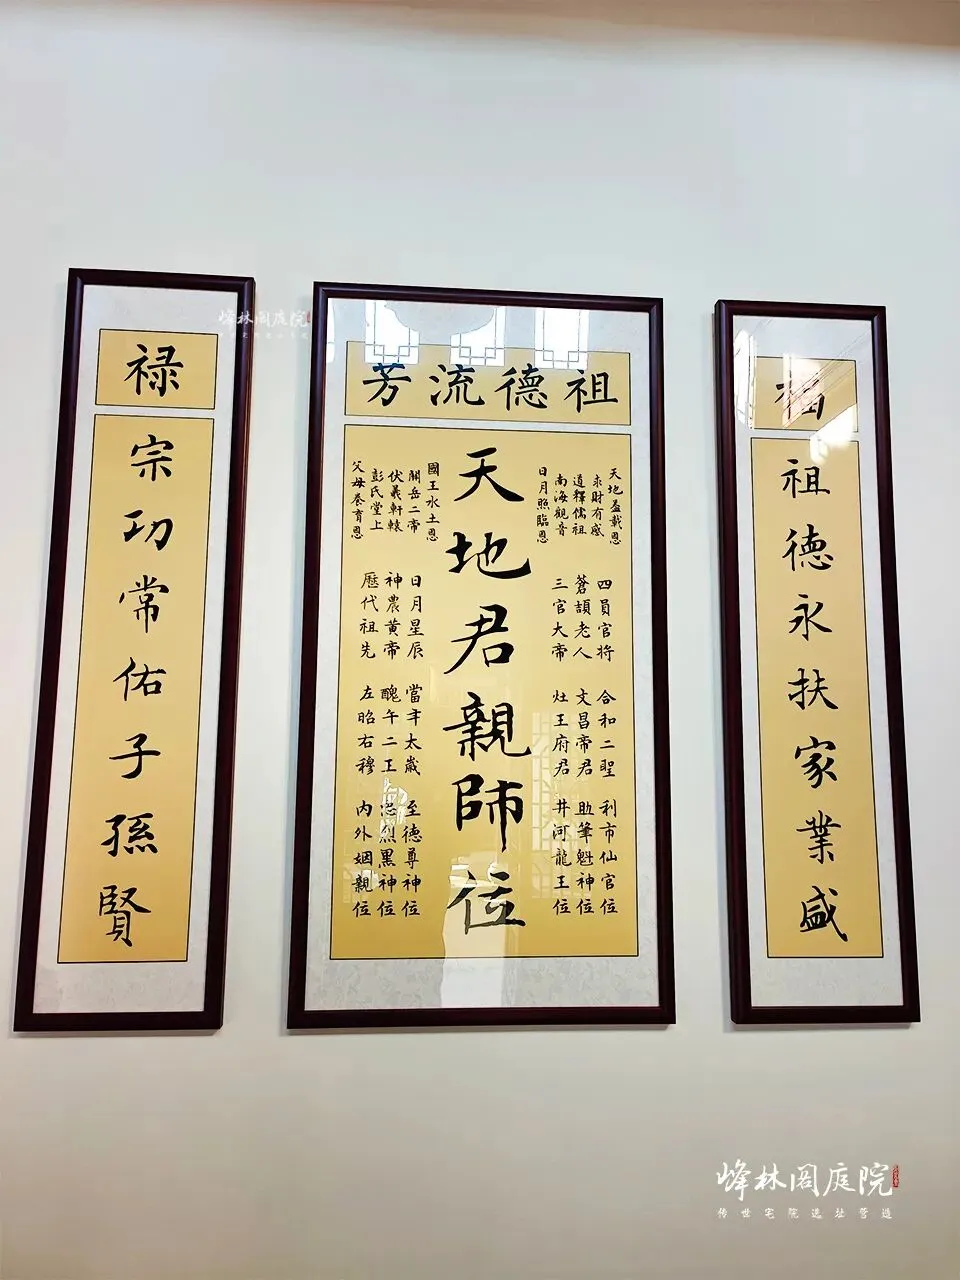 福
祖德永扶家業盛
祖德流芳
天地蓋載恩
求財有感
道釋儒祖
南海觀音
日月照臨恩
四員官將 合和二聖 利市仙官位
蒼頡老人 文昌帝君 助筆魁神位
三官大帝 灶王府君 井河龍王位
天地君親師位
國王水土恩
關岳二帝
伏羲軒轅
彭氏堂上
父母養育恩
日月星辰 當年太歲 至德尊神位
神農黃帝 醜午二王 忠烈黑神位
歷代祖先 左昭右穆 內外姻親位
禄
宗功常佑子孫賢
峰林阁庭院
峰林阁庭院
传世宅院选址营造